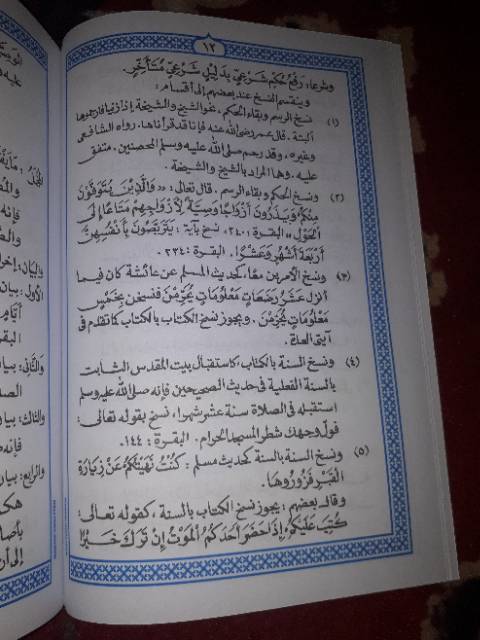 ١٢
وشرعا، رفع حكم شرعي بدليل شرعي متأخر.
وينقسم النسخ عند بعضهم إلى أقسام:
(١) نسخ الرسم وبقاء الحكم، نحو الشيخ والشيخة إذا زنيا فارجموهما
ألبتة. قال عمر رضى الله عنه فإنا قد قرأناها. رواه الشافعى
وغيره، وقد رجم صلى الله عليه وسلم المحصنين. متفق
عليه. وهما المراد بالشيخ والشيخة.
(٢) ونسخ الحكم وبقاء الرسم. قال تعالى: «وَالَّذِينَ يُتَوَفَّوْنَ
مِنكُمْ وَيَذَرُونَ أَزْوَاجًا وَصِيَّةً لِأَزْوَاجِهِمْ مَتَاعًا إِلَى
الْحَوْلِ» البقرة: ٢٤٠. نسخ بآية: يَتَرَبَّصْنَ بِأَنْفُسِهِنَّ
أَرْبَعَةَ أَشْهُرٍ وَعَشْرًا. البقرة: ٢٣٤.
(٣) ونسخ الأمرين معا، كحديث المسلم عن عائشة كان فيما
أنزل عَشْرُ رَضَعَاتٍ مَعْلُومَاتٍ يُحَرِّمْنَ فنسخن بِخَمْسٍ
مَعْلُومَاتٍ يُحَرِّمْنَ. ويجوز نسخ الكتاب بالكتاب كما تقدم في
آيتى العدة.
(٤) ونسخ السنة بالكتاب، كاستقبال بيت المقدس الثابت
بالسنة الفعلية في حديث الصحيحين فإنه صلى الله عليه وسلم
استقبله فى الصلاة ستة عشر شهرا، نسخ بقوله تعالى:
فول وجهك شطر المسجد الحرام. البقرة: ١٤٤.
(٥) ونسخ السنة بالسنة كحديث مسلم: كُنْتُ نَهَيْتُكُمْ عَنْ زِيَارَةِ
الْقَبْرِ فَزُورُوهَا.
وقال بعضهم: يجوز نسخ الكتاب بالسنة، كقوله تعالى:
كُتِبَ عَلَيْكُمْ إِذَا حَضَرَ أَحَدَكُمُ الْمَوْتُ إِنْ تَرَكَ خَيْرًا